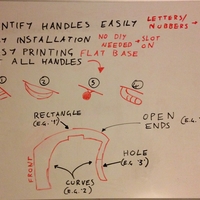 NTIFY HANDLES EASILY LETTERS/
NUMBERS
INSTALLATION NO DIY NEEDED → SLOT ON
ST PRINTING FLAT BASE
ALL HANDLES
5
6
RECTANGLE
(E.G. '1')
OPEN
ENDS (E.G.
HOLE
(E.G. '3')
FRONT
CURVES
(E.G. '2')